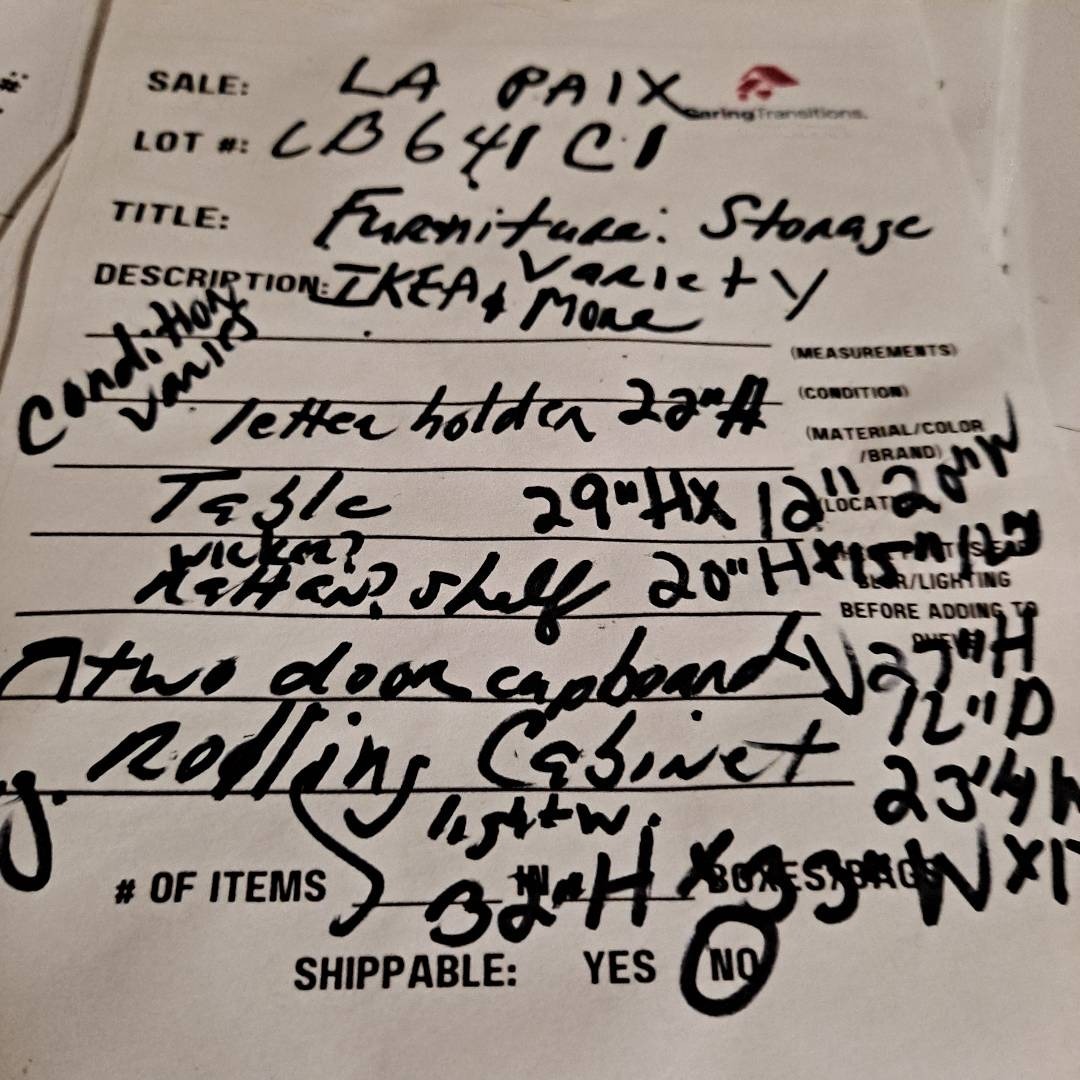 SALE: LA PAIX
CaringTransitions.
LOT #: LB641 C1
TITLE: Furniture: Storage
Variety
DESCRIPTION: IKEA & More
Condition varies
(MEASUREMENTS)
(CONDITION)
letter holder 22"H
(MATERIAL/COLOR
/BRAND)
Table 29"H X 12" 20"W
wicker?
Rattan? shelf 20"H X 15"
BLUR/LIGHTING
BEFORE ADDING TO
two door capboard 27"H
12"D
Rolling Cabinet 23"
lightw.
# OF ITEMS IN BOXES/BAGS
32"H X 33"W X 17
SHIPPABLE: YES NO